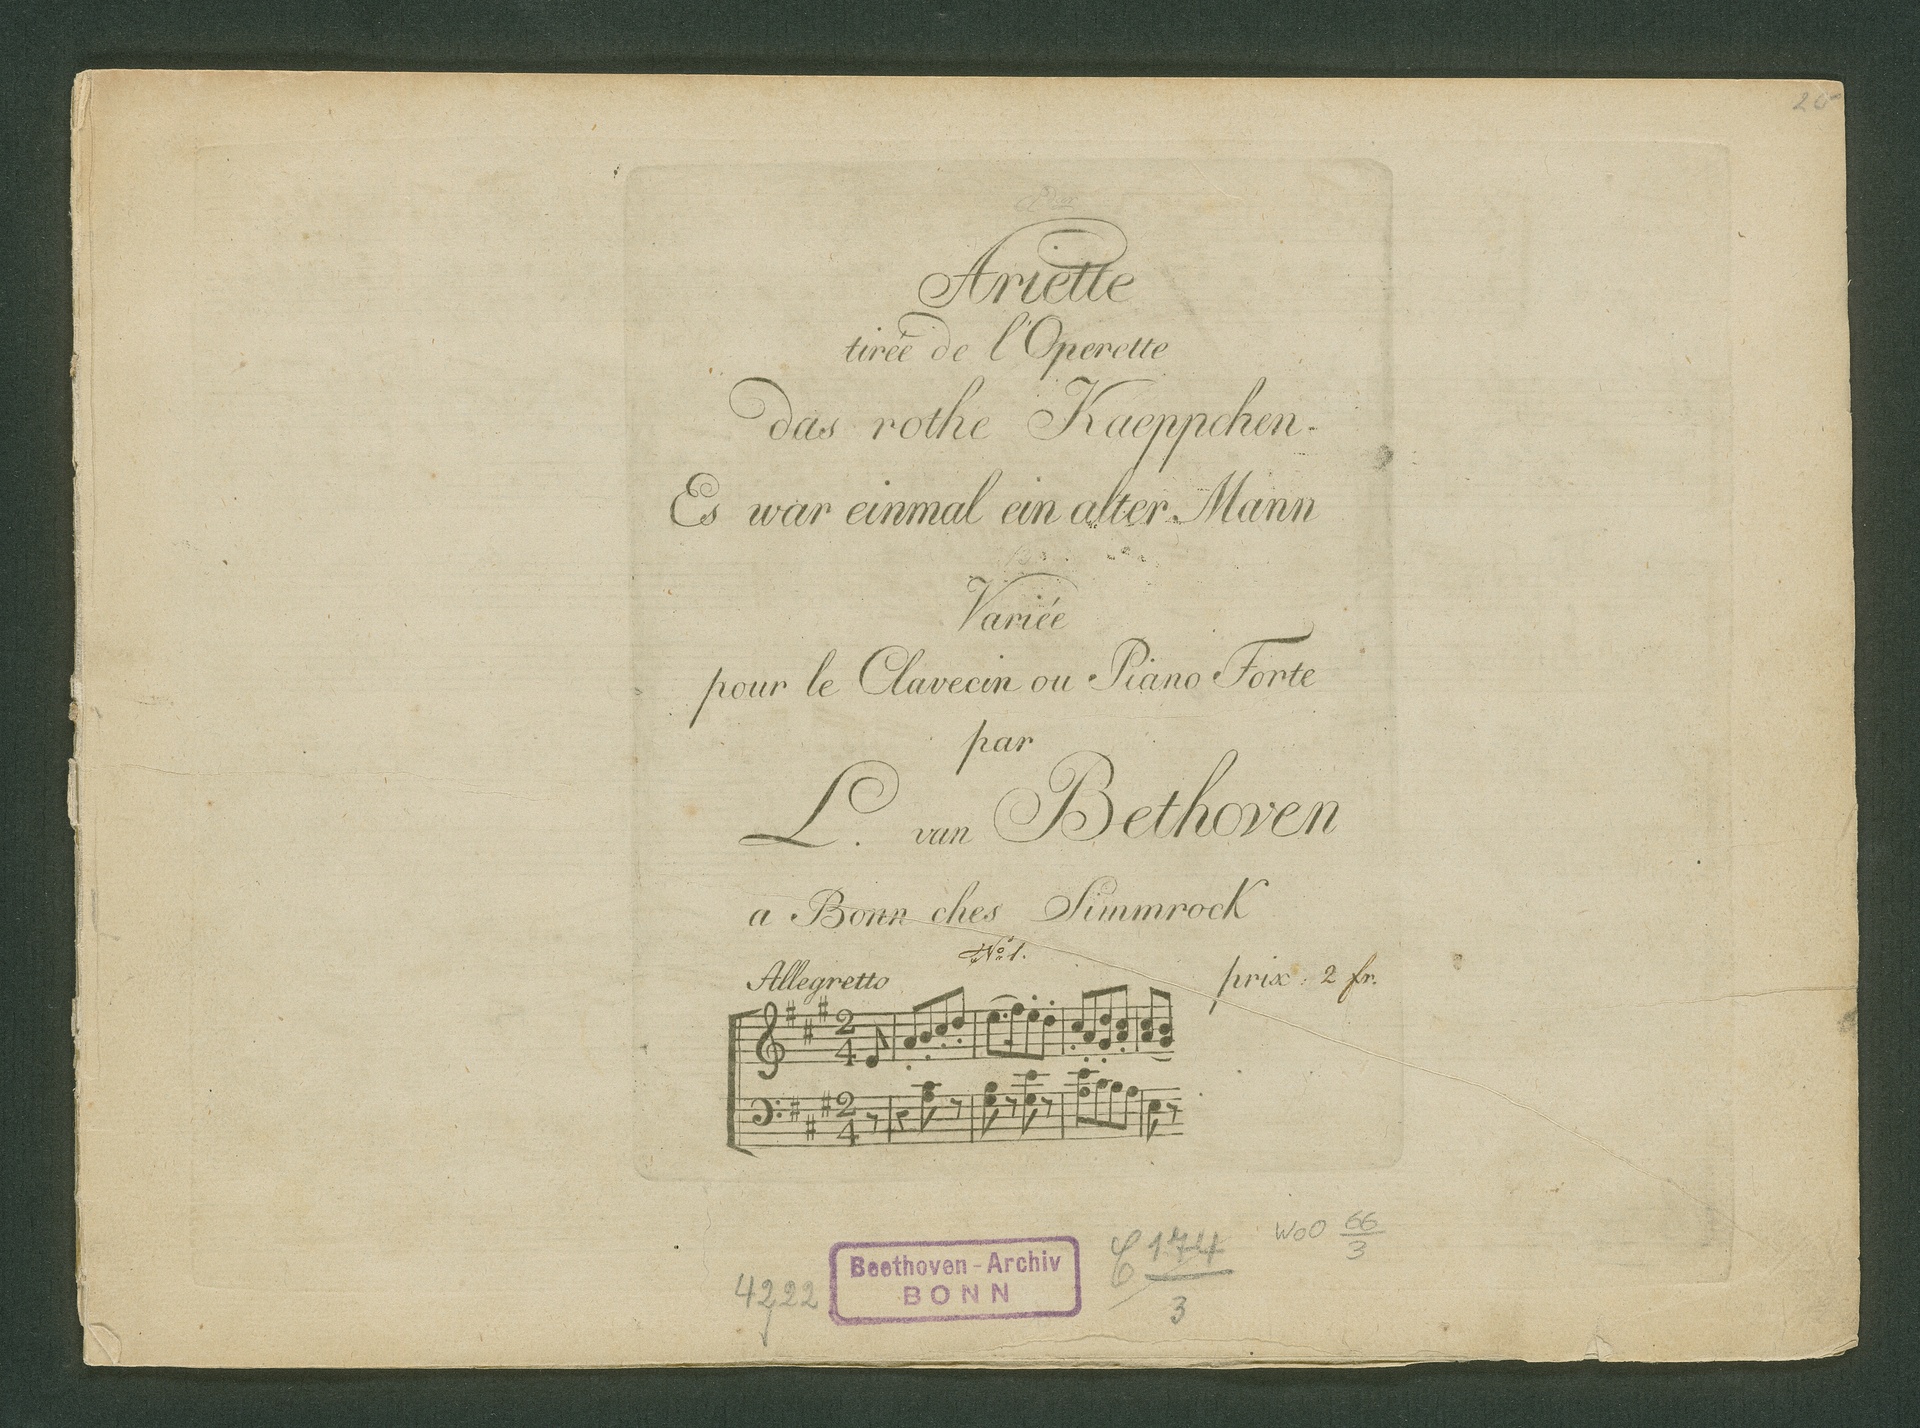 Ariette
tirée de l'Operette
das rothe Kaeppchen.
Es war einmal ein alter Mann
Variée
pour le Clavecin ou Piano Forte
par
L. van Bethoven
a Bonn ches Simmrock
No. 1.
Allegretto
prix : 2 fr.
2
4
2
4
WoO 66/3
C 174/3
4222
Beethoven-Archiv
BONN